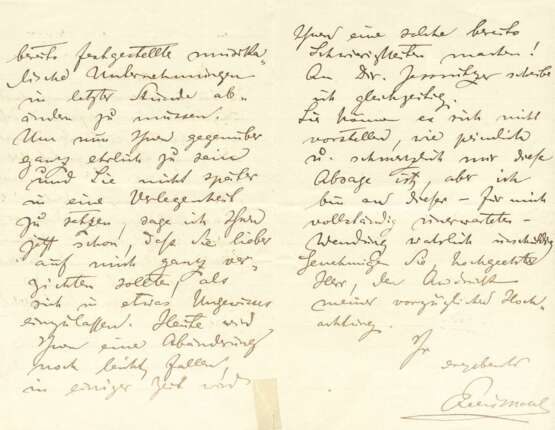 bereits festgestellte musika-
lische Unternehmungen
in letzter Stunde ab-
ändern zu müssen.
Um nun Ihnen gegenüber
ganz ehrlich zu sein
und Sie nicht später
in eine Verlegenheit
zu setzen, sage ich Ihnen
jetzt schon, daß Sie lieber
auf mich ganz ver-
zichten sollten, als
sich in etwas Ungewisses
einzulassen. Heute wird
Ihnen eine Abänderung
noch leicht fallen,
in einiger Zeit wird
Ihnen eine solche bereits
Schwierigkeiten machen!
An Dir. schreibe
ich gleichzeitig.
Sie können es sich nicht
vorstellen, wie peinlich
u. schmerzlich mir diese
Absage ist, aber ich
bin an dieser – für mich
vollständig unerwarteten –
Wendung wahrlich unschuldig
Genehmigen Sie, hochgeehrter
Herr, den Ausdruck
meiner vorzüglichen Hoch-
achtung
Ihr
ergebenster